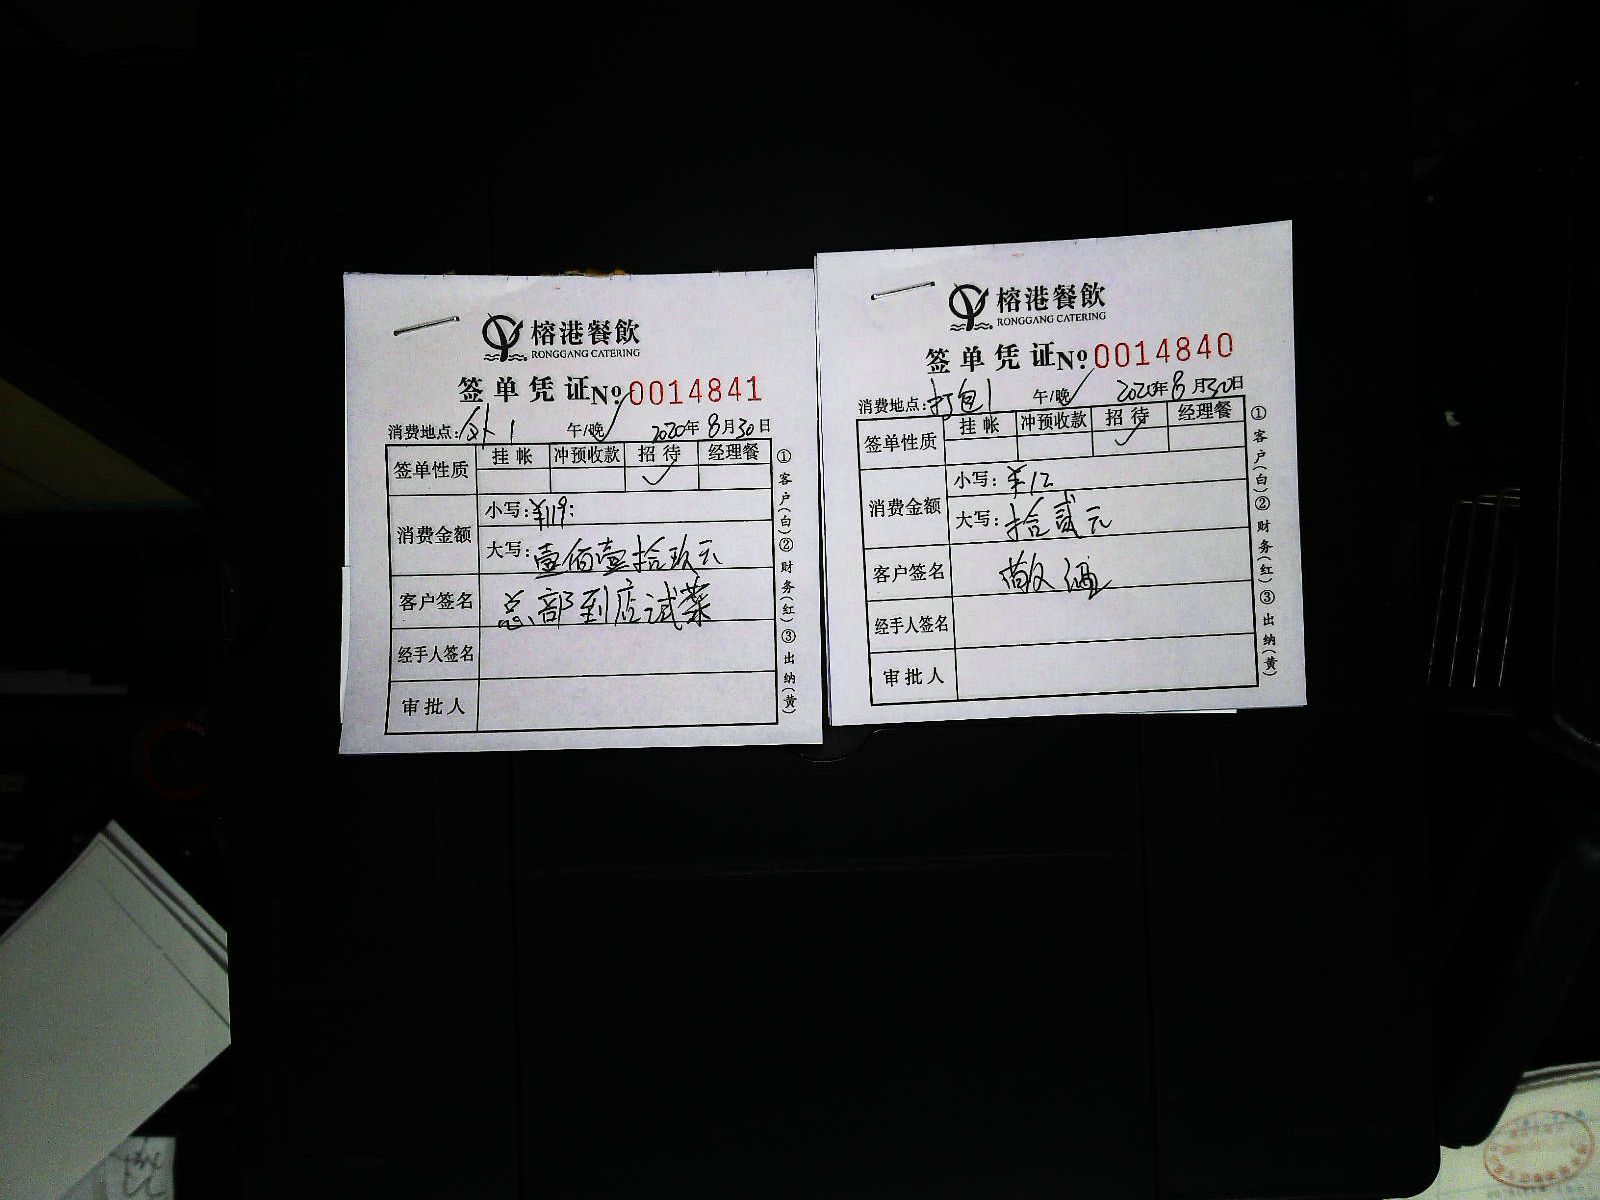 榕港餐飲
RONGGANG CATERING
签单凭证 №0014841
消费地点：外1 午/晚 2020年8月30日
签单性质 挂帐 冲预收款 招待 经理餐
✓
消费金额
小写：¥119:
大写：壹佰壹拾玖元
客户签名 总部到店试菜
经手人签名
审批人
①客户(白)②财务(红)③出纳(黄)
榕港餐飲
RONGGANG CATERING
签单凭证 №0014840
消费地点：打包1 午/晚 2020年8月30日
签单性质 挂帐 冲预收款 招待 经理餐
✓
消费金额
小写：¥12
大写：拾贰元
客户签名
经手人签名
审批人
①客户(白)②财务(红)③出纳(黄)